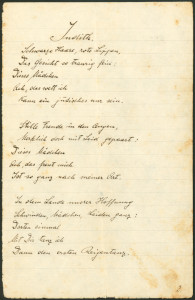 Judith.
Schwarze Haare, rote Lippen,
Das Gesicht so traurig fein:
Dieses Mädchen
Ach, das weiss ich
Kann ein jüdisches nur sein.
Stille Freude in den Augen,
Merklich doch mit Leid gepaart:
Dieses Mädchen
Ach, das freut mich
Ist so ganz nach meiner Art.
In dem Lande unserer Hoffnung
Schwinden, Mädchen, Leiden ganz:
Dorten einmal
Mit Dir tanz ich
Dann den ersten Reigentanz.